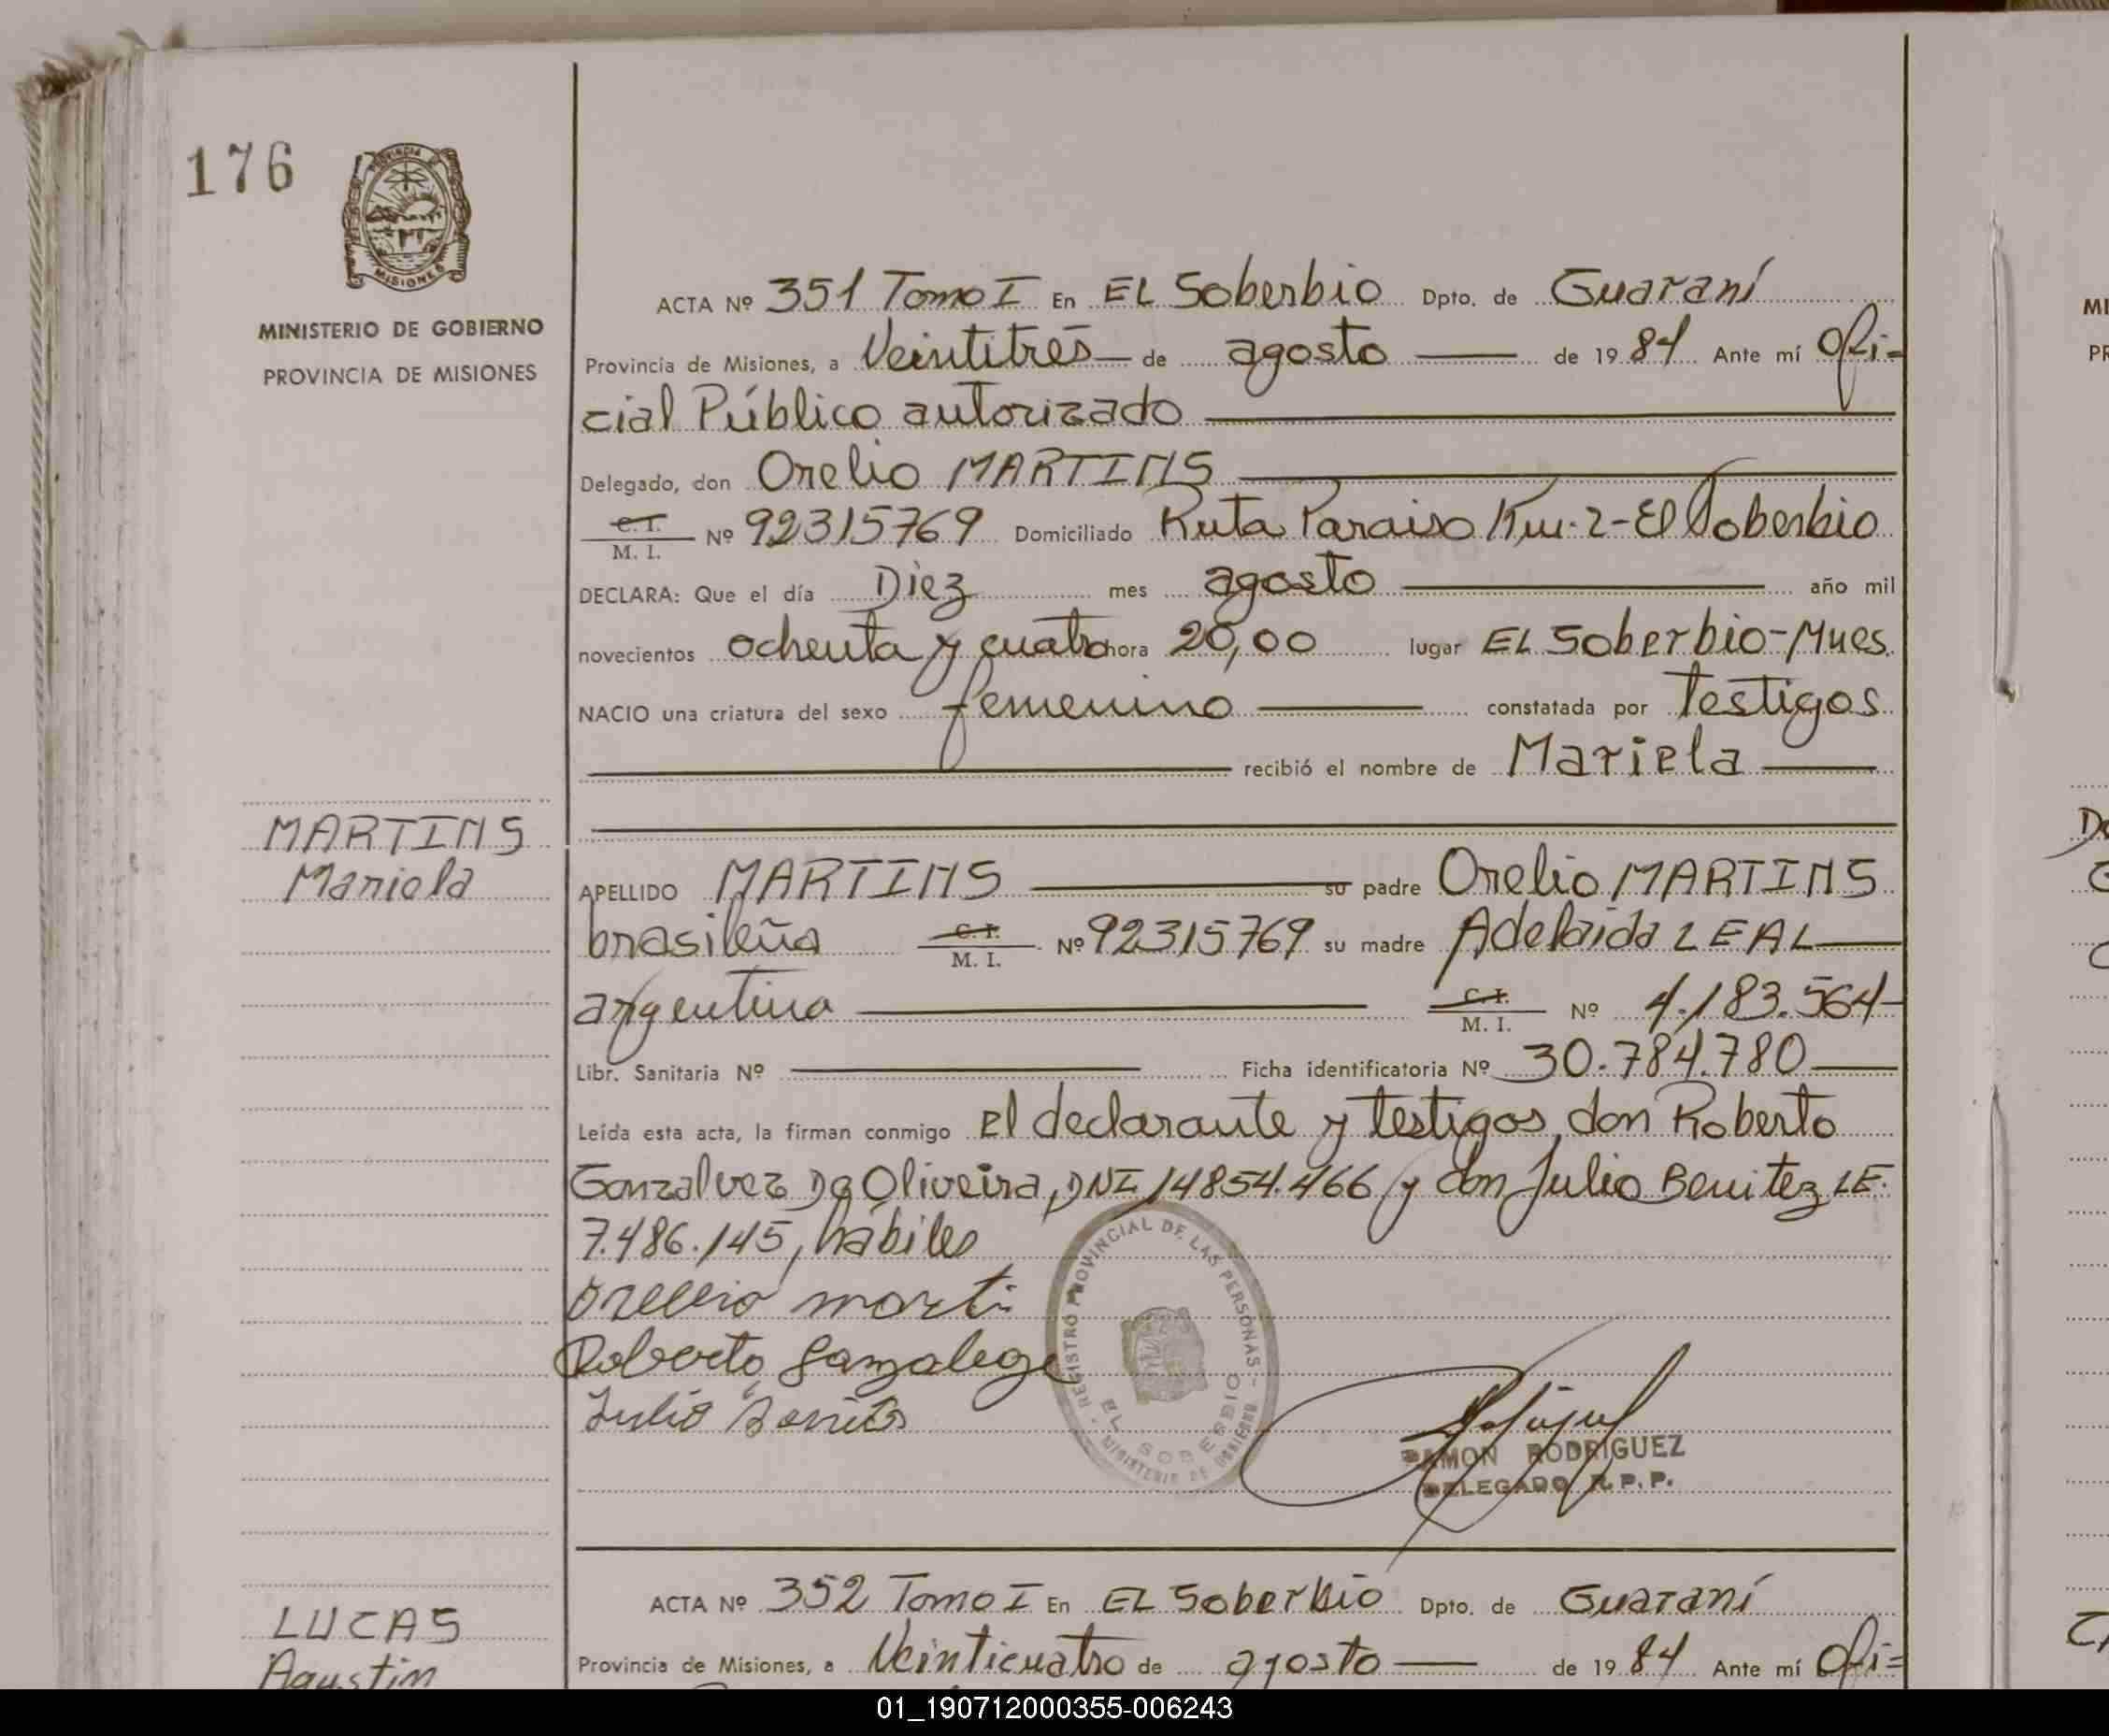 176
PROVINCIA DE
MISIONES
MINISTERIO DE GOBIERNO
PROVINCIA DE MISIONES
ACTA Nº 351 Tomo I En EL Soberbio Dpto. de Guaraní
Provincia de Misiones, a Veintitrés de agosto de 1984 Ante mí Ofi=
cial Público autorizado
Delegado, don Orelio MARTINS
C. I.
M. I. Nº 92315769 Domiciliado Ruta Paraiso Km. 2-El Soberbio
DECLARA: Que el día Diez mes agosto año mil
novecientos ochenta y cuatro hora 20,00 lugar EL Soberbio-Mnes.
NACIO una criatura del sexo femenino constatada por Testigos
recibió el nombre de Mariela
MARTINS
Mariela
APELLIDO MARTINS su padre Orelio MARTINS
brasileña C. I.
M. I. Nº 92315769 su madre Adelaida LEAL
argentina C. I.
M. I. Nº 4.183.564
Libr. Sanitaria Nº Ficha identificatoria Nº 30.784.780
Leída esta acta, la firman conmigo el declarante y testigos, don Roberto
Gonzalvez Da Oliveira, DNI 14854.466 y don Julio Benitez LE.
7.486.145, hábiles
Orellio marti
Roberto
Julio
REGISTRO PROVINCIAL DE LAS PERSONAS
EL SOBERBIO
MINISTERIO DE GOBIERNO
RAMON RODRIGUEZ
DELEGADO R.P.P.
ACTA Nº 352 Tomo I En EL Soberbio Dpto. de Guaraní
LUCAS
Agustin
Provincia de Misiones, a Veinticuatro de agosto de 1984 Ante mí Ofi=
MI
PR
01_190712000355-006243